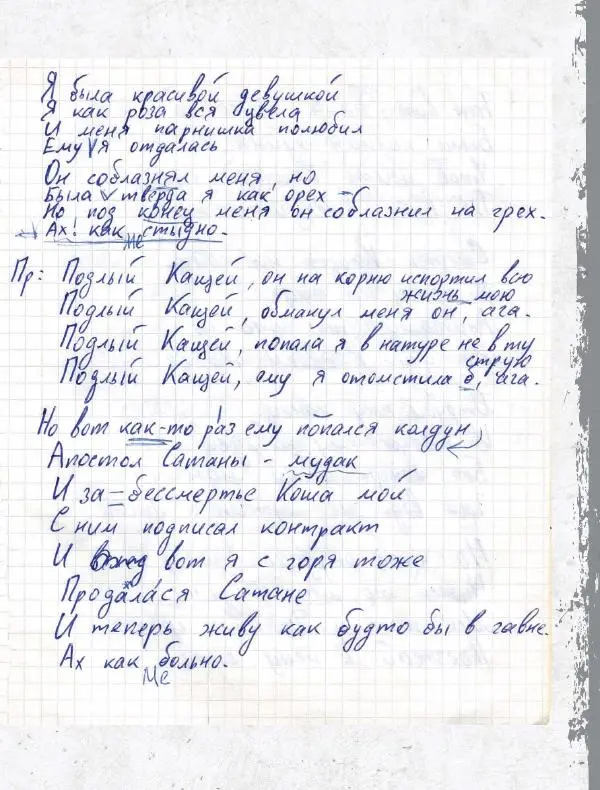 Я была красивой девушкой
Я как роза вся цвела
И меня парнишка полюбил
Ему я отдалась
Он соблазнял меня, но
Была тверда я как орех –
Но под конец меня он соблазнил на грех.
Ах! как же стыдно.
Пр: Подлый Кащей, он на корню испортил всю жизнь мою
Подлый Кащей, обманул меня он, ага.
Подлый Кащей, попала я в натуре не в ту струю
Подлый Кащей, ому я отомстила б, ага.
Но вот как-то раз ему попался колдун
Апостол Сатаны - мудак
И за бессмертье Коша мой
С ним подписал контракт
И вот я с горя тоже
Продалася Сатане
И теперь живу как будто бы в гавне.
Ах как мне больно.